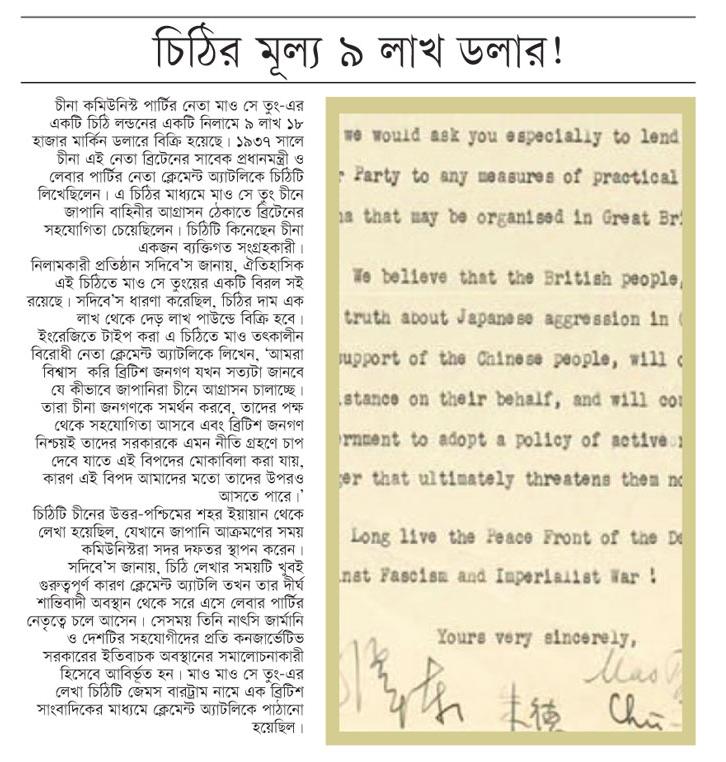 চিঠির মূল্য ৯ লাখ ডলার!
চীনা কমিউনিস্ট পার্টির নেতা মাও সে তুং-এর
একটি চিঠি লন্ডনের একটি নিলামে ৯ লাখ ১৮
হাজার মার্কিন ডলারে বিক্রি হয়েছে। ১৯৩৭ সালে
চীনা এই নেতা ব্রিটেনের সাবেক প্রধানমন্ত্রী ও
লেবার পার্টির নেতা ক্লেমেন্ট অ্যাটলিকে চিঠিটি
লিখেছিলেন। এ চিঠির মাধ্যমে মাও সে তুং চীনে
জাপানি বাহিনীর আগ্রাসন ঠেকাতে ব্রিটেনের
সহযোগিতা চেয়েছিলেন। চিঠিটি কিনেছেন চীনা
একজন ব্যক্তিগত সংগ্রহকারী।
নিলামকারী প্রতিষ্ঠান সদিবে'স জানায়, ঐতিহাসিক
এই চিঠিতে মাও সে তুংয়ের একটি বিরল সই
রয়েছে। সদিবে'স ধারণা করেছিল, চিঠির দাম এক
লাখ থেকে দেড় লাখ পাউন্ডে বিক্রি হবে।
ইংরেজিতে টাইপ করা এ চিঠিতে মাও তৎকালীন
বিরোধী নেতা ক্লেমেন্ট অ্যাটলিকে লিখেন, 'আমরা
বিশ্বাস করি ব্রিটিশ জনগণ যখন সত্যটা জানবে
যে কীভাবে জাপানিরা চীনে আগ্রাসন চালাচ্ছে।
তারা চীনা জনগণকে সমর্থন করবে, তাদের পক্ষ
থেকে সহযোগিতা আসবে এবং ব্রিটিশ জনগণ
নিশ্চয়ই তাদের সরকারকে এমন নীতি গ্রহণে চাপ
দেবে যাতে এই বিপদের মোকাবিলা করা যায়,
কারণ এই বিপদ আমাদের মতো তাদের উপরও
আসতে পারে।'
চিঠিটি চীনের উত্তর-পশ্চিমের শহর ইয়ায়ান থেকে
লেখা হয়েছিল, যেখানে জাপানি আক্রমণের সময়
কমিউনিস্টরা সদর দফতর স্থাপন করেন।
সদিবে'স জানায়, চিঠি লেখার সময়টি খুবই
গুরুত্বপূর্ণ কারণ ক্লেমেন্ট অ্যাটলি তখন তার দীর্ঘ
শান্তিবাদী অবস্থান থেকে সরে এসে লেবার পার্টির
নেতৃত্বে চলে আসেন। সেসময় তিনি নাৎসি জার্মানি
ও দেশটির সহযোগীদের প্রতি কনজার্ভেটিভ
সরকারের ইতিবাচক অবস্থানের সমালোচনাকারী
হিসেবে আবির্ভূত হন। মাও মাও সে তুং-এর
লেখা চিঠিটি জেমস বারট্রাম নামে এক ব্রিটিশ
সাংবাদিকের মাধ্যমে ক্লেমেন্ট অ্যাটলিকে পাঠানো
হয়েছিল।
we would ask you especially to lend
r Party to any measures of practical
na that may be organised in Great Bri
We believe that the British people,
truth about Japanese aggression in
support of the Chinese people, will
istance on their behalf, and will cor
ernment to adopt a policy of active
ger that ultimately threatens them no
Long live the Peace Front of the De
inst Fascism and Imperialist War !
Yours very sincerely,
Mao
朱德 Chu